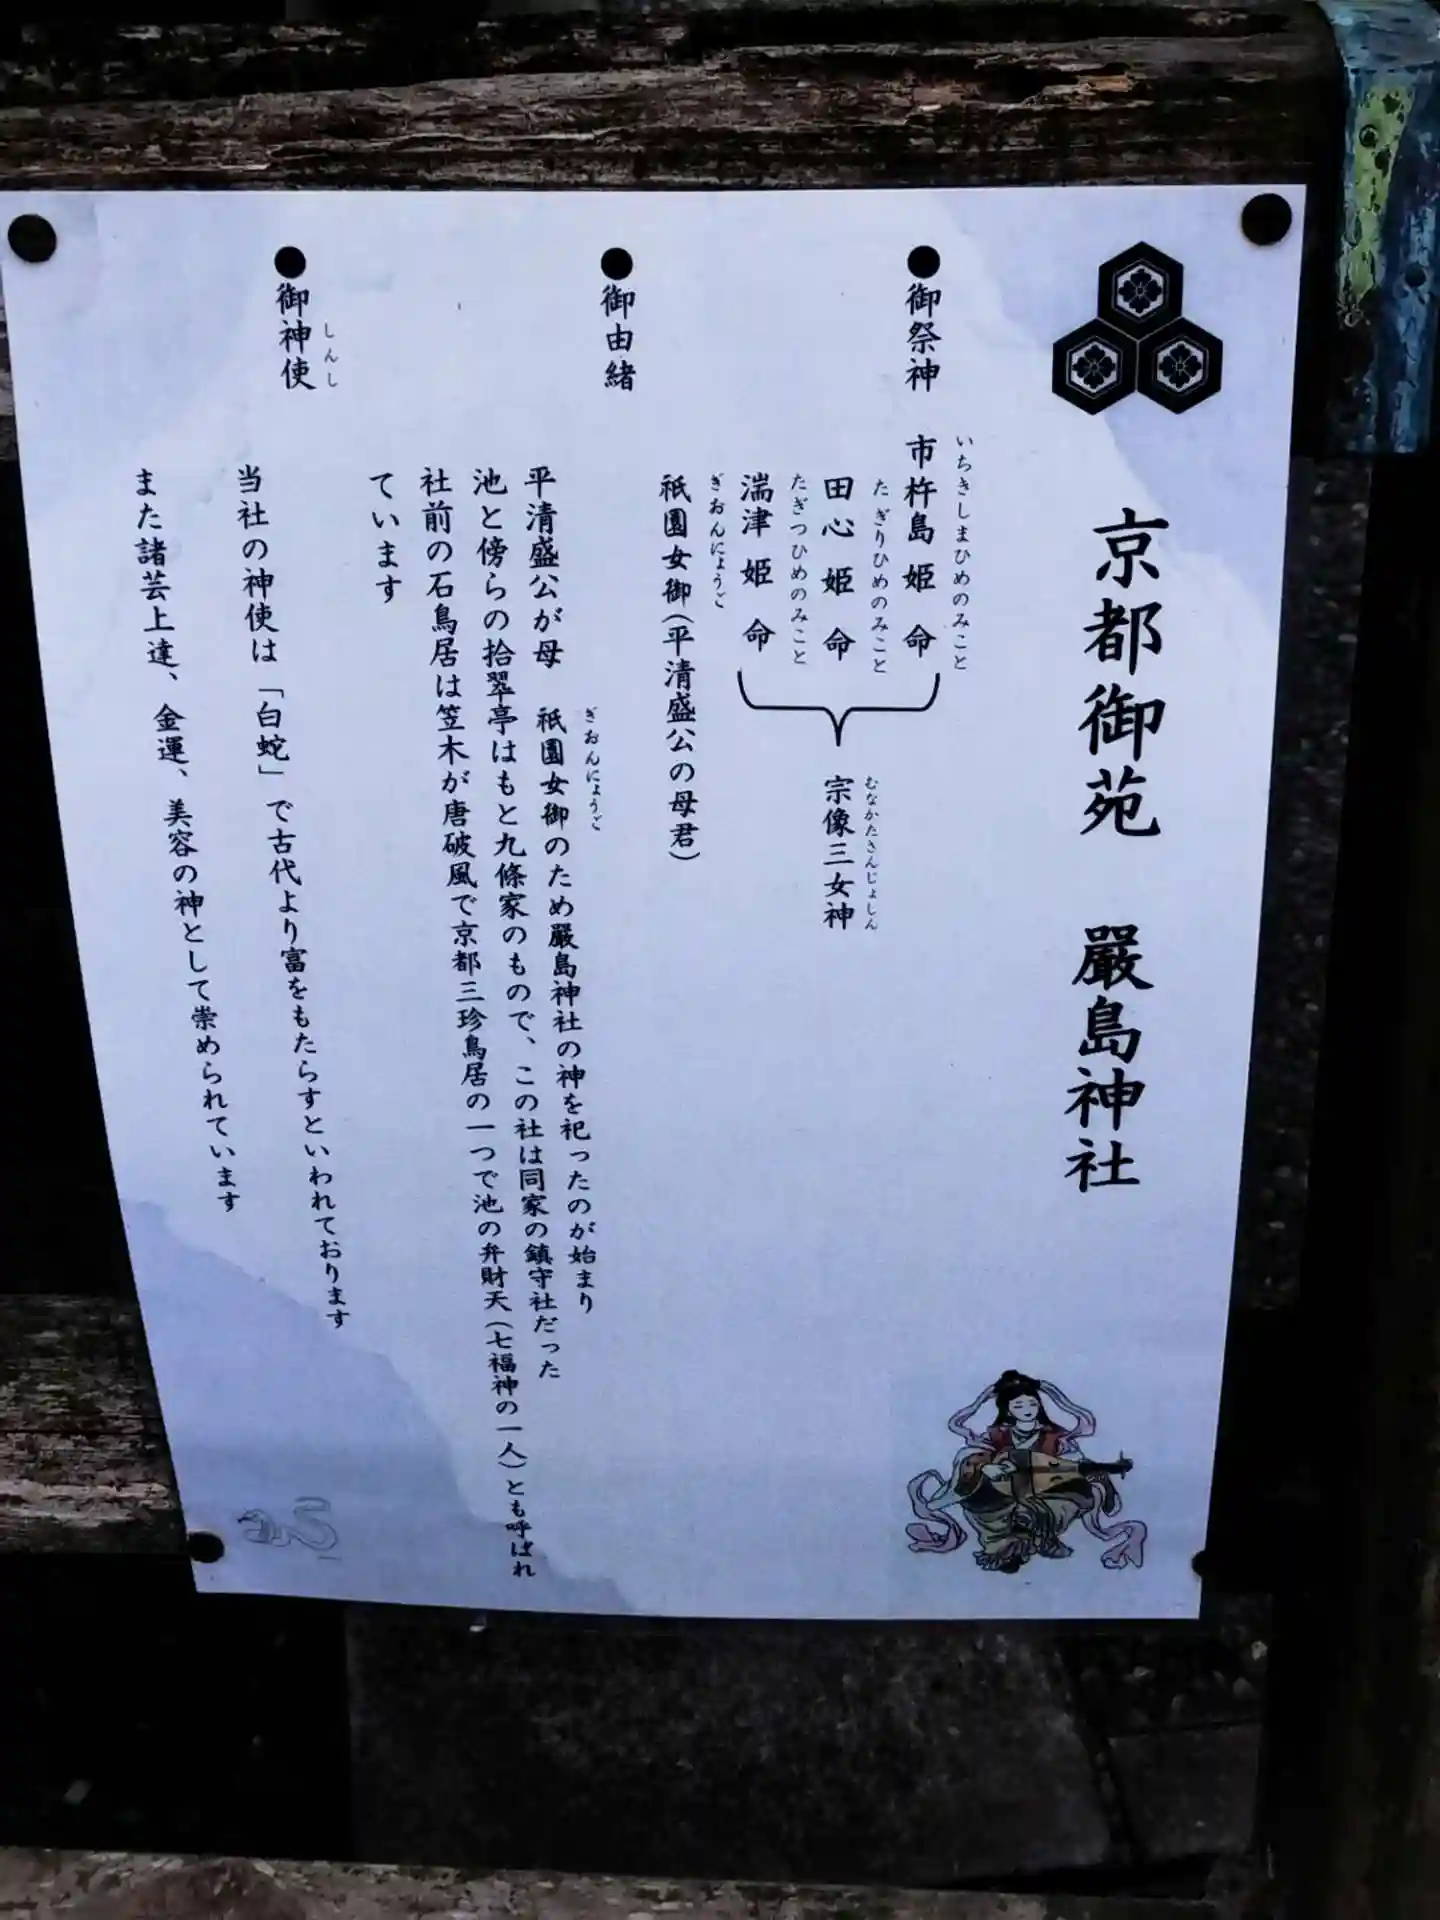 京都御苑　嚴島神社
●御祭神
いちきしまひめのみこと
市杵島姫命
たぎりひめのみこと
田心姫命
たぎつひめのみこと
湍津姫命
むなかたさんじょしん
宗像三女神
ぎおんにょうご
祇園女御(平清盛公の母君)
●御由緒
ぎおんにょうご
平清盛公が母　祇園女御のため嚴島神社の神を祀ったのが始まり
池と傍らの拾翠亭はもと九條家のもので、この社は同家の鎮守社だった
社前の石鳥居は笠木が唐破風で京都三珍鳥居の一つで池の弁財天(七福神の一人)とも呼ばれ
ています
しんし
●御神使
当社の神使は「白蛇」で古代より富をもたらすといわれております
また諸芸上達、金運、美容の神として崇められています